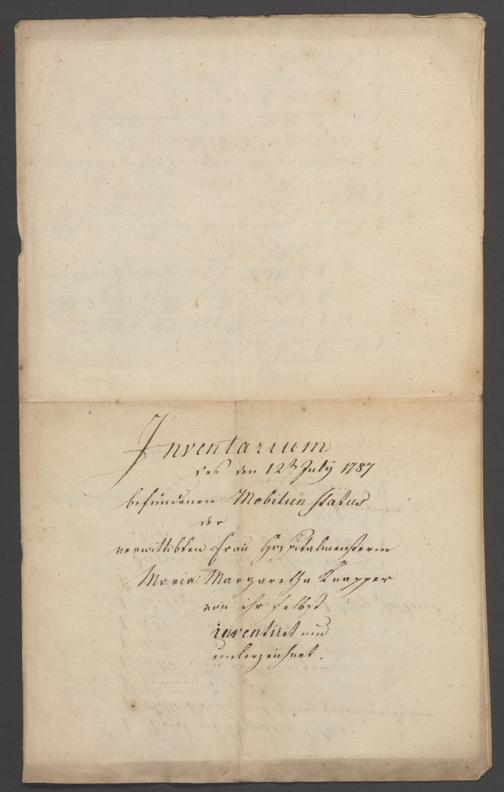 Inventarium
des den 12t July 1787
befundenen Mobilien status
der
verwittibten Frau Hospitalmeisterin
Maria Margaretha Knapper
von ihr selbst
inventirt und
unterzeichnet.